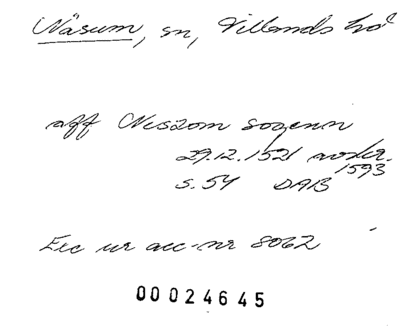 Näsum, sn, Villands hd
aff Neszom sogenn
29.12.1521
1593
s. 54 DAB
Exc ur acc-nr 8062
00024645